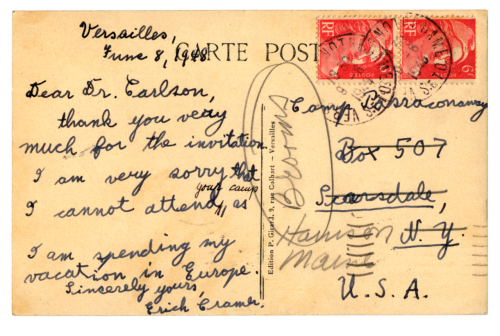 Versailles,
June 8, 1948
CARTE POST
Dear Dr. Carlson,
thank you very
much for the invitation.
I am very sorry that
your camp
I cannot attend, as
I am spending my
vacation in Europe.
Sincerely yours,
Erich Cramer.
Edition P. Girard, 9, rue Colbert - Versailles
Brooms
RF
RF
6F
POSTES
Camp
Box 507
Scarsdale,
N. Y.
Harrison
Maine
U. S. A.